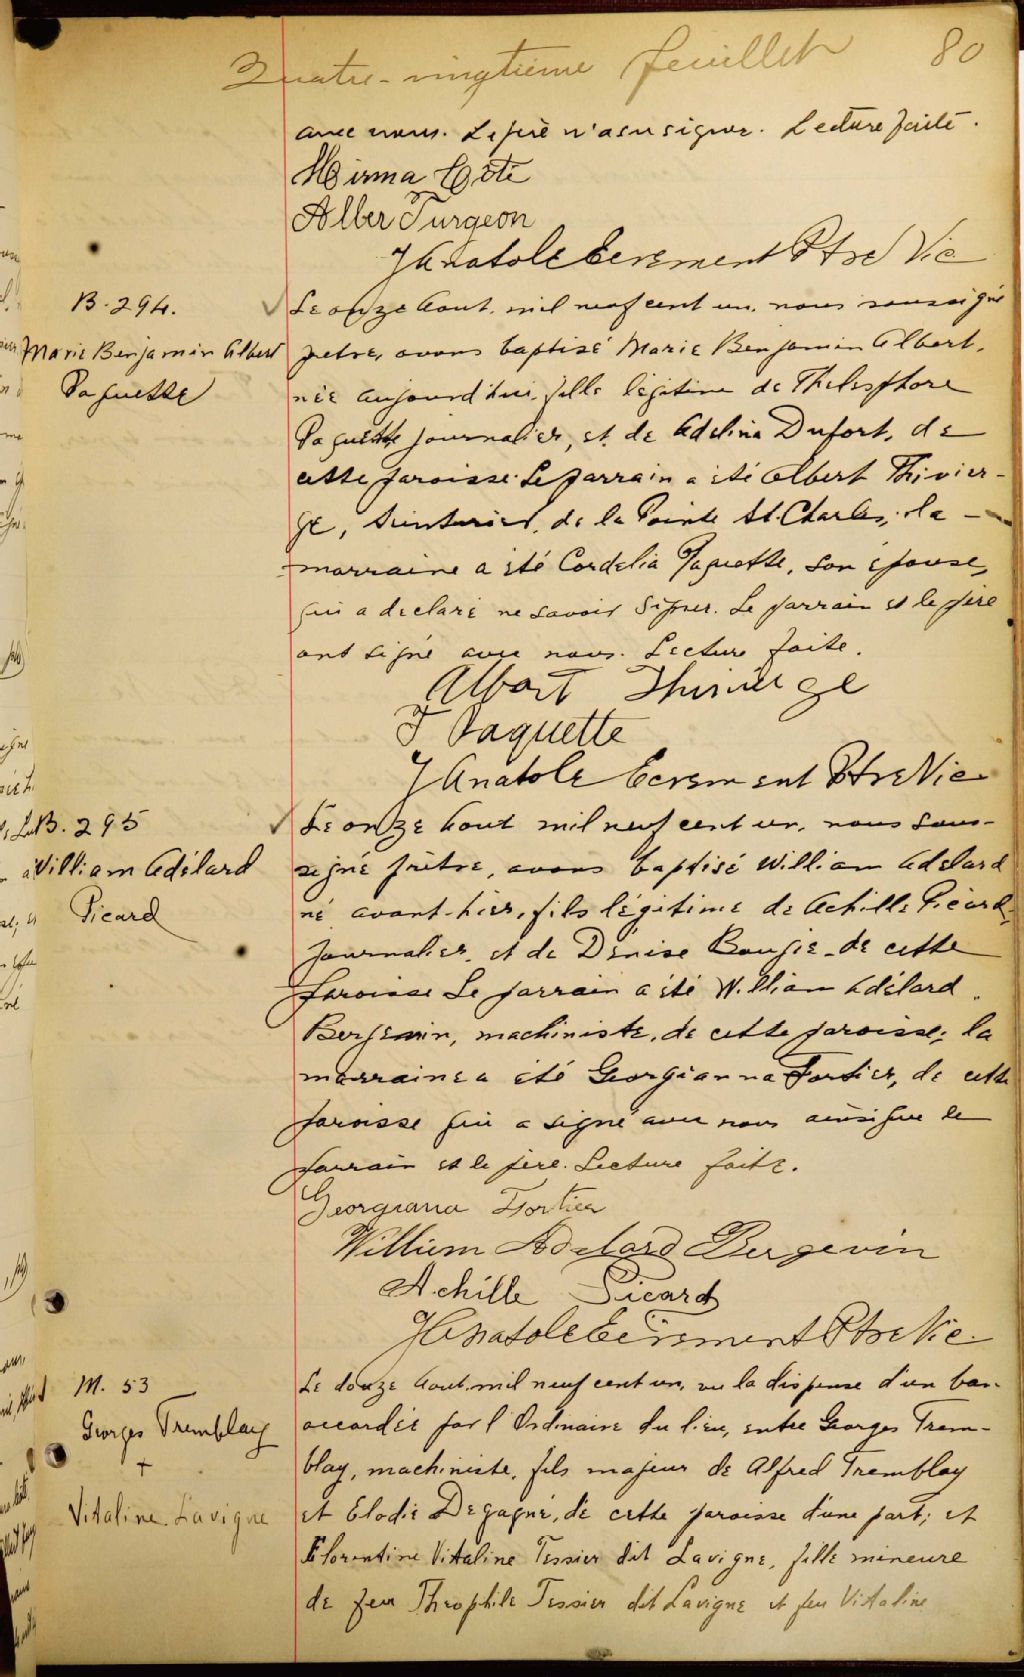 Quatre-vingtième feuillet 80
avec nous. Le père n'a su signer. Lecture faite.
Mirma Côté
Alber Turgeon
J Anatole Ecrement Ptre Vic
B. 294.
Marie Benjamin Albert
Paquette
Le onze Aout, mil neuf cent un, nous soussigné
prêtre, avons baptisé Marie Benjamin Albert,
née aujourd'hui, fille légitime de Thelesphore
Paquette journalier, et de Adelina Dufort, de
cette paroisse. Le parrain a été Albert Thivier-
ge, teinturier, de la Pointe St. Charles, la
marraine a été Cordelia Paquette, son épouse,
qui a declaré ne savoir signer. Le parrain et le père
ont signé avec nous. Lecture faite.
Albert Thivierge
T Paquette
J Anatole Ecrement Ptre Vic
B. 295
William Adélard
Picard
Le onze Aout mil neuf cent un, nous sous-
signé prêtre, avons baptisé William Adelard
né avant-hier, fils légitime de Achille Picard,
journalier, et de Dénise Bougie de cette
paroisse Le parrain a été William Adélard
Bergevin, machiniste, de cette paroisse; la
marraine a été Georgianna Fortier, de cette
paroisse qui a signé avec nous ainsi que le
parrain et le père. Lecture faite.
Georgiana Fortier
William Adelard Bergevin
Achille Picard
J Anatole Ecrement Ptre Vic.
M. 53
Georges Tremblay
+
Vitaline Lavigne
Le douze Aout, mil neuf cent un, vu la dispense d'un ban
accordée par l'Ordinaire du lieu, entre Georges Trem-
blay, machiniste, fils majeur de Alfred Tremblay
et Elodie Degagné, de cette paroisse d'une part; et
Florentine Vitaline Tessier dit Lavigne, fille mineure
de feu Theophile Tessier dit Lavigne et feu Vitaline